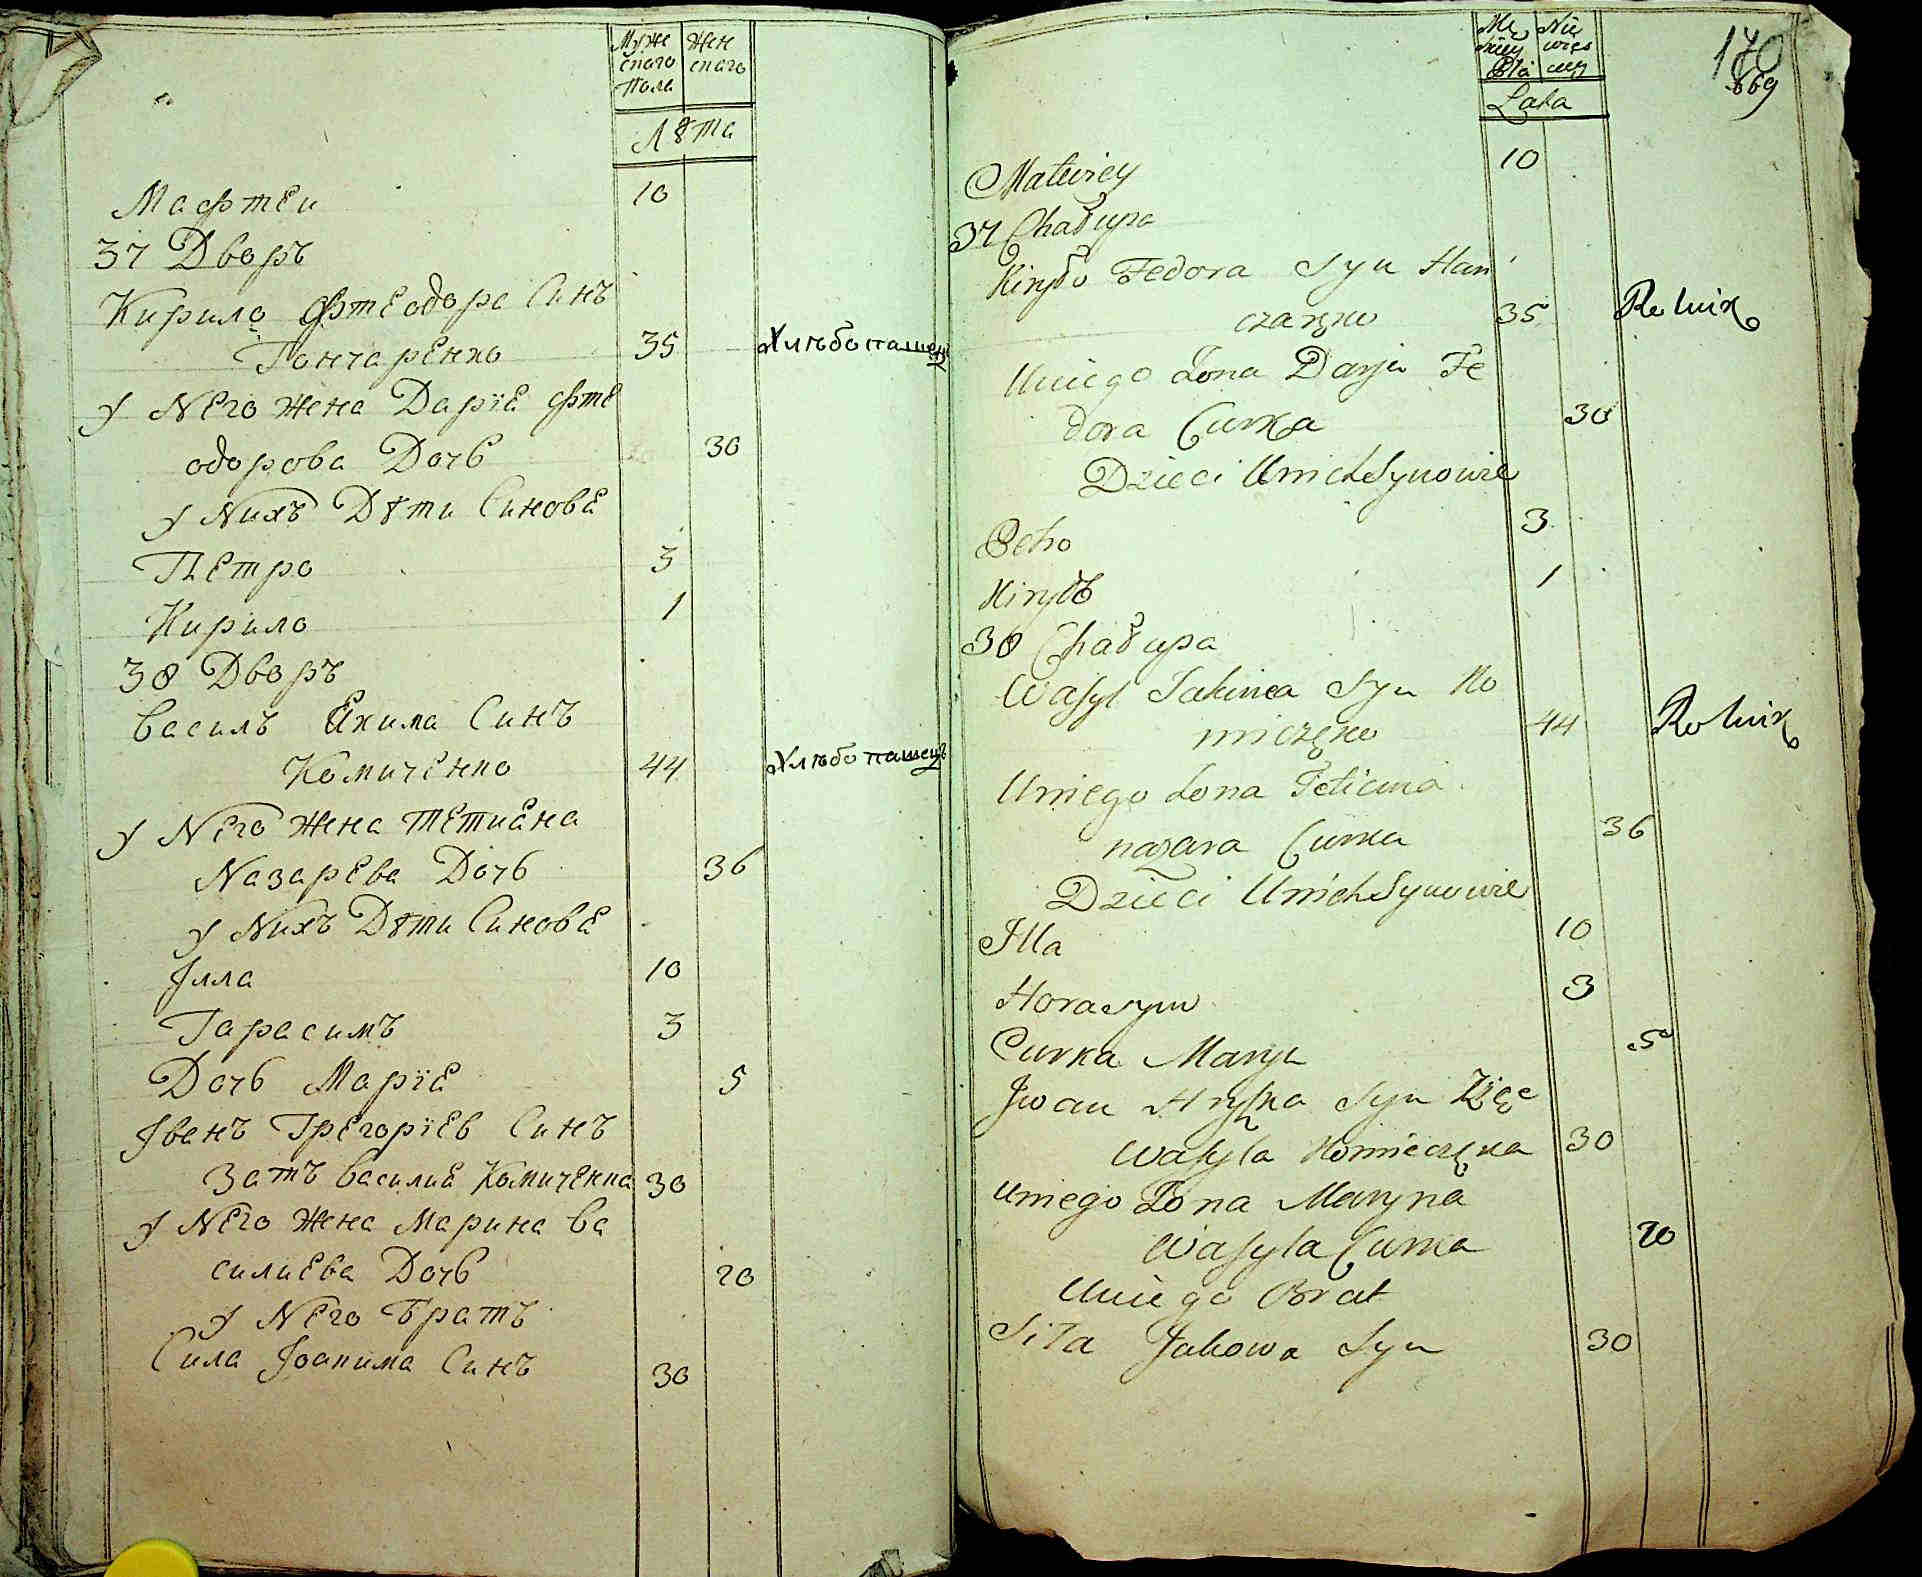 Муже Жен
скаго скаго
Пола
Лѣта
Мафтеи 10
37 Дворъ
Кирило Фтеодора Синъ
Гончаренко 35 Хлѣбопашец
У Него жена Дариѣ Фте
одорова Дочь 30
У Нихъ Дѣти Синовѣ
Петро 3
Кирило 1
38 Дворъ
Василъ Екима Синъ
Комиченко 44 Хлѣбопашецъ
У Него жена Тетиена
Назарева Дочь 36
У Нихъ Дѣти Синовѣ
Iлла 10
Гарасимъ 3
Дочь Мариѣ 5
Iванъ Грегориев Синъ
Затъ Василиѣ Комиченка 30
У Него жена Марина Ва
силиева Дочь 20
У Него Братъ
Сила Iоакима Синъ 30
170
669
Lata
Matwiey 10
37 Chałupa
Kiryło Fedora Syn Han
czaręko 35 Rolnik
Uniego Żona Darja Fe
dora Curka 30
Dzieci Unich Synowie
Petro 3
Kiryło 1
38 Chałupa
Wasyl Jakima Syn Ko
miczęko 44 Rolnik
Uniego Żona Teticina
nazara Curka 36
Dzieci Unich Synowie
Illa 10
Horasym 3
Curka Marya 5
Jwan Hryska Syn Zięc
Wasyla Komieczęka 30
Uniego Żona Maryna
Wasyla Curka 20
Uniego Brat
Siła Jakowa Syn 30